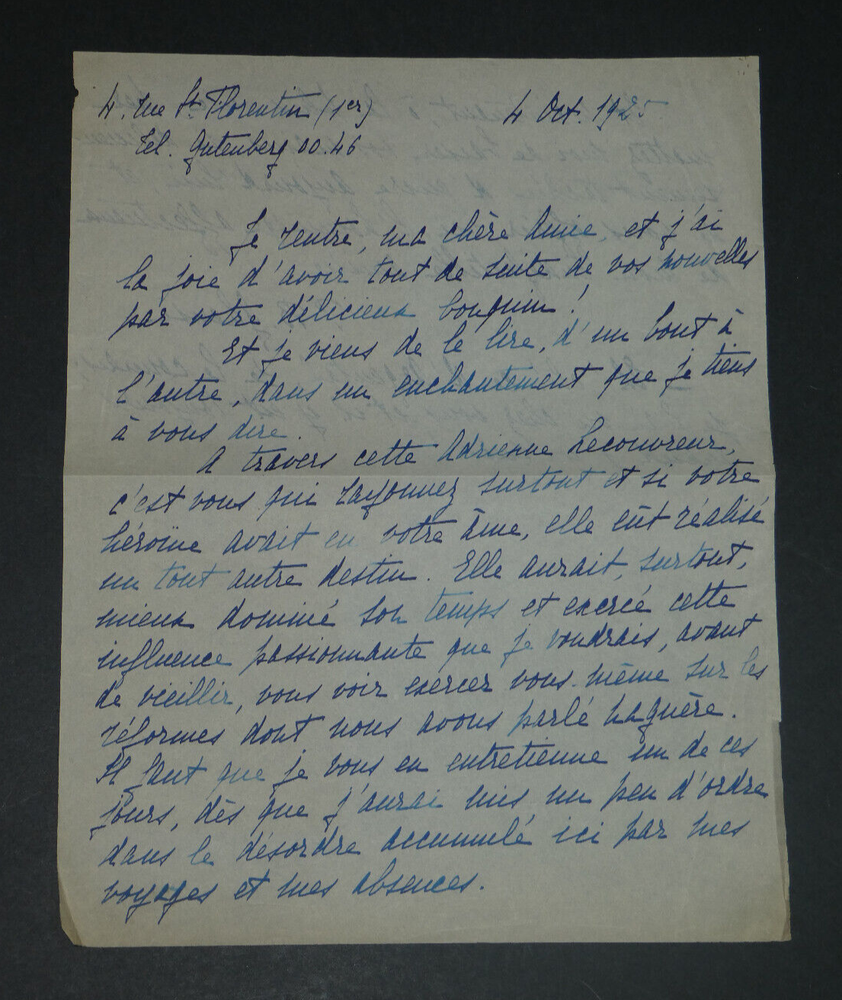 4. rue St. Florentin (1er)
4 Oct. 1925
Tel. Gutenberg 00.46
Je rentre, ma chère Amie, et j'ai
la joie d'avoir tout de suite de vos nouvelles
par votre délicieux bouquin !
Et je viens de le lire, d'un bout à
l'autre, dans un enchantement que je tiens
à vous dire.
A travers cette Adrienne Lecouvreur,
c'est vous qui rayonnez surtout et si votre
héroïne avait eu votre âme, elle eût réalisé
un tout autre destin. Elle aurait, surtout,
mieux dominé son temps et exercé cette
influence passionnante que je voudrais, avant
de vieillir, vous voir exercer vous-même sur les
réformes dont nous avons parlé naguère.
Il faut que je vous en entretienne un de ces
jours, dès que j'aurai mis un peu d'ordre
dans le désordre accumulé ici par mes
voyages et mes absences.